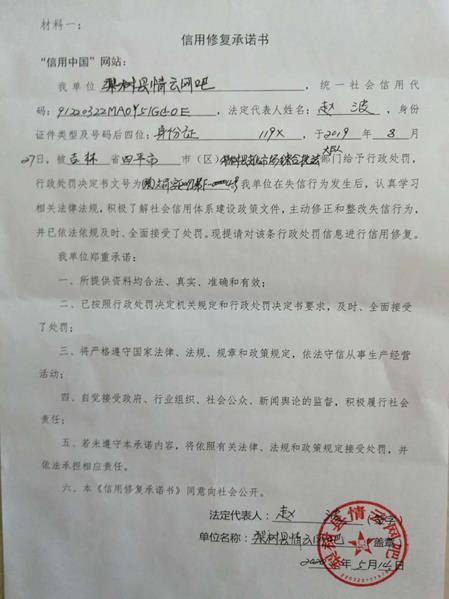 材料一：
信用修复承诺书
“信用中国”网站：
我单位 梨树县情云网吧 ，统一社会信用代
码：91220322MA0Y51G40E，法定代表人姓名：赵 波，身份
证件类型及号码后四位：身份证 119X，于2019年 8月
27日，被吉林 省四平市 市（区） 部门给予行政处罚，
行政处罚决定书文号为 我单位在失信行为发生后，认真学习
相关法律法规，积极了解社会信用体系建设政策文件，主动修正和整改失信行为，
并已依法依规及时、全面接受了处罚。现提请对该条行政处罚信息进行信用修复。
我单位郑重承诺：
一、所提供资料均合法、真实、准确和有效；
二、已按照行政处罚决定机关规定和行政处罚决定书要求，及时、全面接受
了处罚；
三、将严格遵守国家法律、法规、规章和政策规定，依法守信从事生产经营
活动；
四、自觉接受政府、行业组织、社会公众、新闻舆论的监督，积极履行社会
责任；
五、若未遵守本承诺内容，将依照有关法律、法规和政策规定接受处罚，并
依法承担相应责任。
六、本《信用修复承诺书》同意向社会公开。
法定代表人：赵 波（签字）
单位名称：梨树县情云网吧（盖章）
年5月14日
梨树县情云网吧